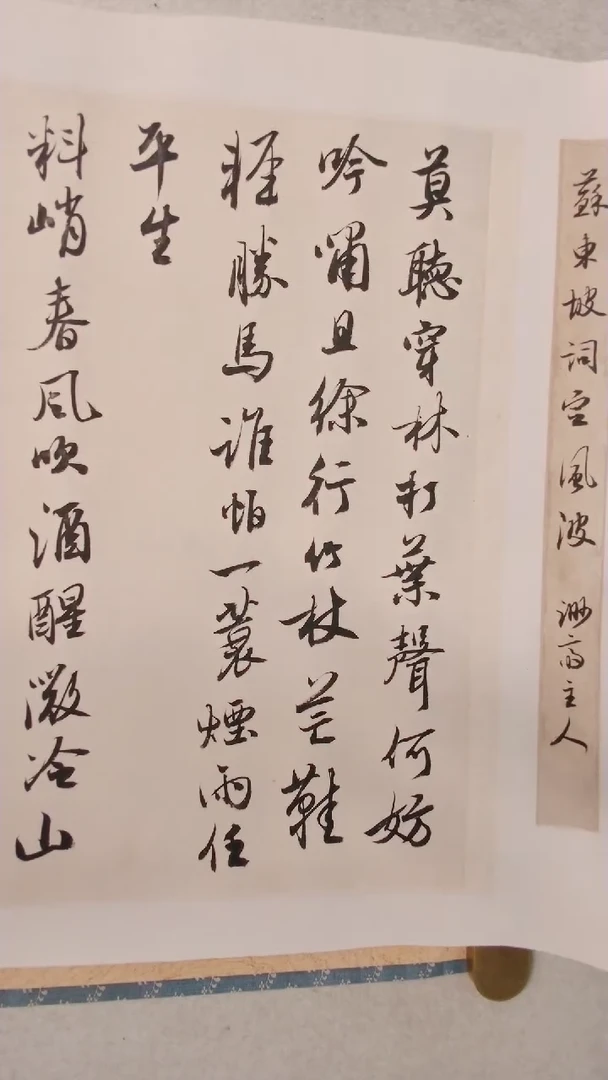 蘇東坡詞定風波 斋主人
莫聽穿林打葉聲何妨
吟嘯且徐行竹杖芒鞋
輕勝馬誰怕一蓑煙雨任
平生
料峭春風吹酒醒微冷山